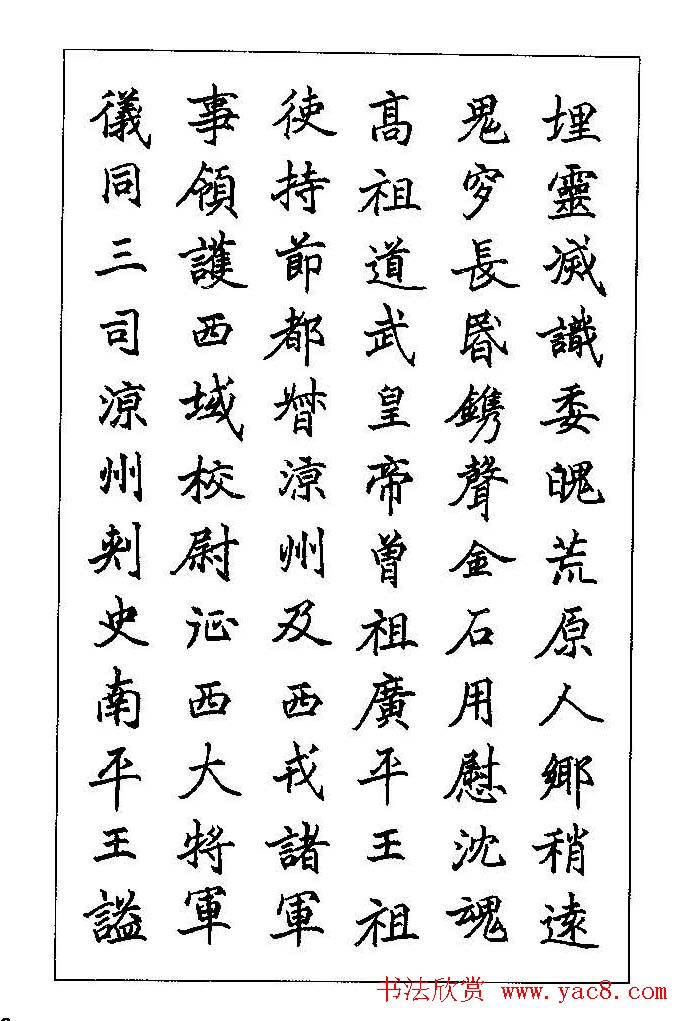 埋靈滅識委魄荒原人鄉稍遠
鬼穸長昏鐫聲金石用慰沈魂
高祖道武皇帝曾祖廣平王祖
使持節都督涼州及西戎諸軍
事領護西域校尉征西大將軍
儀同三司涼州刺史南平王謚
书法欣赏 www.yac8.com